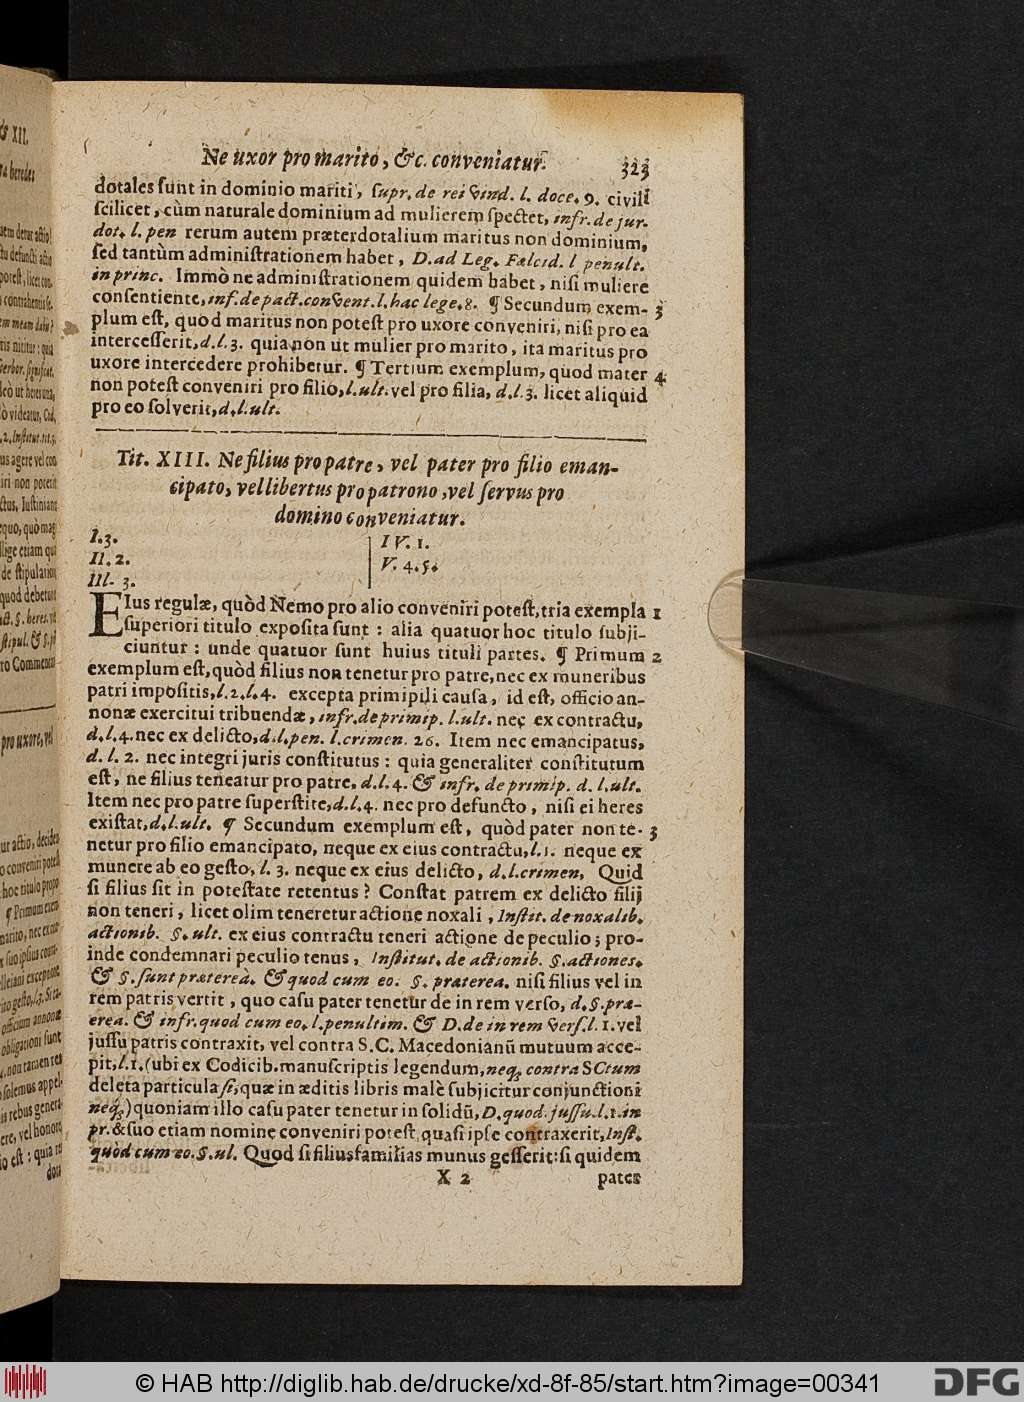 Ne uxor pro marito, &c. conveniatur. 323
dotales sunt in dominio mariti, supr. de rei vind. l. doce. 9. civili
scilicet, cùm naturale dominium ad mulierem spectet, infr. de jur.
dot. l. pen rerum autem præterdotalium maritus non dominium,
sed tantùm administrationem habet, D. ad Leg. Falcid. l penult.
in princ. Immò ne administrationem quidem habet, nisi muliere
consentiente, inf. de pact. convent. l. hac lege. 8. ¶ Secundum exem- 3
plum est, quòd maritus non potest pro uxore conveniri, nisi pro ea
intercesserit, d. l. 3. quia non ut mulier pro marito, ita maritus pro
uxore intercedere prohibetur. ¶ Tertium exemplum, quod mater 4
non potest conveniri pro filio, l. ult. vel pro filia, d. l. 3. licet aliquid
pro eo solverit, d. l. ult.
Tit. XIII. Ne filius pro patre, vel pater pro filio eman-
cipato, vel libertus pro patrono, vel servus pro
domino conveniatur.
I. 3.
II. 2.
III. 3.
IV. 1.
V. 4. 5.
EIus regulæ, quòd Nemo pro alio conveniri potest, tria exempla 1
superiori titulo exposita sunt: alia quatuor hoc titulo subji-
ciuntur: unde quatuor sunt huius tituli partes. ¶ Primum 2
exemplum est, quòd filius non tenetur pro patre, nec ex muneribus
patri impositis, l. 2. l. 4. excepta primipili causa, id est, officio an-
nonæ exercitui tribuendæ, infr. de primip. l. ult. nec ex contractu,
d. l. 4. nec ex delicto, d. l. pen. l. crimen. 26. Item nec emancipatus,
d. l. 2. nec integri juris constitutus: quia generaliter constitutum
est, ne filius teneatur pro patre, d. l. 4. & infr. de primip. d. l. ult.
Item nec pro patre superstite, d. l. 4. nec pro defuncto, nisi ei heres
existat, d. l. ult. ¶ Secundum exemplum est, quòd pater non te- 3
netur pro filio emancipato, neque ex eius contractu, l. 1. neque ex
munere ab eo gesto, l. 3. neque ex eius delicto, d. l. crimen, Quid
si filius sit in potestate retentus? Constat patrem ex delicto filij
non teneri, licet olim teneretur actione noxali, Instit. de noxalib.
actionib. §. ult. ex eius contractu teneri actione de peculio; pro-
inde condemnari peculio tenus, Institut. de actionib. §. actiones.
& §. sunt prætereà. & quod cum eo. §. præterea. nisi filius vel in
rem patris vertit, quo casu pater tenetur de in rem verso, d. §. præ-
erea. & infr. quod cum eo. l. penultim. & D. de in rem vers. l. 1. vel
jussu patris contraxit, vel contra S. C. Macedonianũ mutuum acce-
pit, l. 1. (ubi ex Codicib. manuscriptis legendum, neq; contra SCtum
deleta particula si, quæ in æditis libris malè subjicitur conjunctioni
neq;) quoniam illo casu pater tenetur in solidũ, D. quod. jussu. l. 1. in
pr. & suo etiam nomine conveniri potest quasi ipse contraxerit, Inst.
quod cum eo. §. ul. Quod si filiusfamilias munus gesserit: si quidem
X 2 pater
© HAB http://diglib.hab.de/drucke/xd-8f-85/start.htm?image=00341
DFG